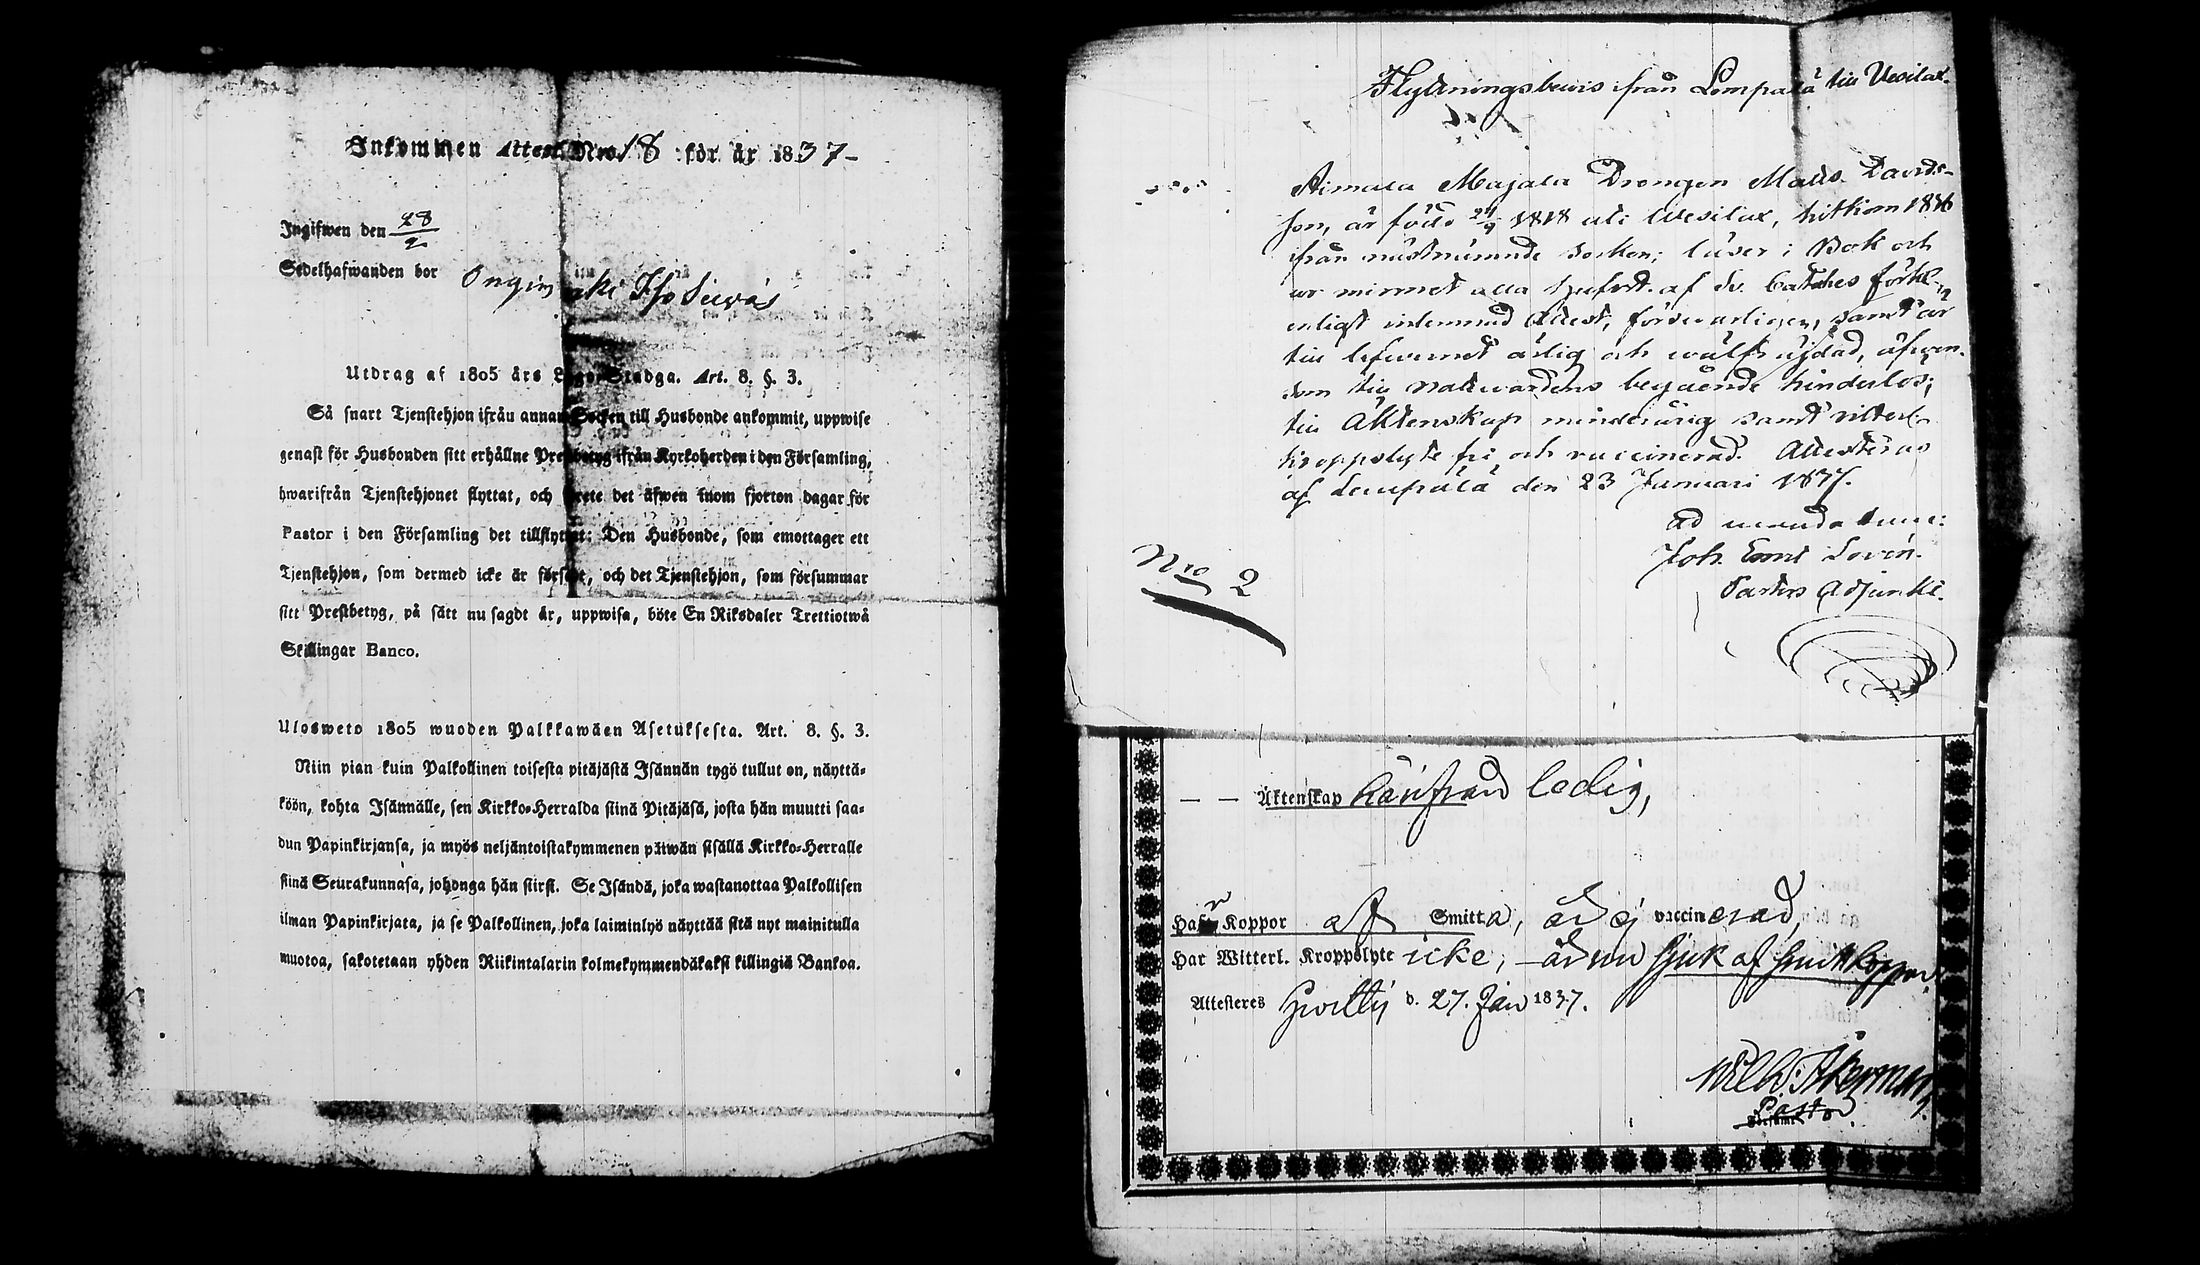 Inkommen Attest Nro 18 för år 1837-
Ingifwen den 28/2
Sedelhafwanden bor
Utdrag af 1805 års Lego-Stadga. Art. 8. §. 3.
Så snart Tjenstehjon ifrån annan Socken till Husbonde ankommit, uppwise
genast för Husbonden sitt erhållne Prestbetyg ifrån Kyrkoherden i den Församling,
hwarifrån Tjenstehjonet flyttat, och förete det äfwen inom fjorton dagar för
Pastor i den Församling det tillflyttat: Den Husbonde, som emottager ett
Tjenstehjon, som dermed icke är försedt, och det Tjenstehjon, som försummar
sitt Prestbetyg, på sätt nu sagdt är, uppwisa, böte En Riksdaler Trettiotwå
Skillingar Banco.
Ulosweto 1805 wuoden Palkkawäen Asetuksesta. Art. 8. §. 3.
Niin pian kuin Palkollinen toisesta pitäjästä Isännän tygö tullut on, näyttä-
köön, kohta Isännälle, sen Kirkko-Herralda siinä Pitäjäsä, josta hän muutti saa-
dun Papinkirjansa, ja myös neljäntoistakymmenen päiwän sisällä Kirkko-Herralle
siinä Seurakunnasa, johonga hän siirsi. Se Isändä, joka wastanottaa Palkollisen
ilman Papinkirjata, ja se Palkollinen, joka laiminlyö näyttää sitä nyt mainitulla
muotoa, sakotetaan yhden Riikintalarin kolmekymmendäkaksi killingiä Bankoa.
Flyttningsbevis ifrån Lempälä till Vesilax.
Aimala Majala Drengen Matts Davids-
son, är född 24/9 1818 uti Wesilax, hitkom 1836
ifrån nästnämnde socken; läser i Bok och
ur minnet alla Hufvdst. af Dr. Catches förkl.
enligt inlemnad Attest, försvarligen, samt är
till lefvernet ärlig och wälfrägdad, äfwen-
som till Nattvardens begående hinderlös;
till Äktenskap minderårig samt vitterl.
kroppslyte fri och vaccinerad. Attesteras
af Lempälä den 23 Januari 1837.
ad mandatum:
Joh. Ernt Lovén.
Pastors Adjunkt.
Nro 2
— — Äktenskap härifrån ledig,
Haft Koppor af Smitta, är ej vaccinerad,
Har Witterl. Kroppslyte icke, är nu sjuk af smittkoppor.
Attesteres d. 27. Jan 1837.
Wilh: Åkerman.
Pastor.